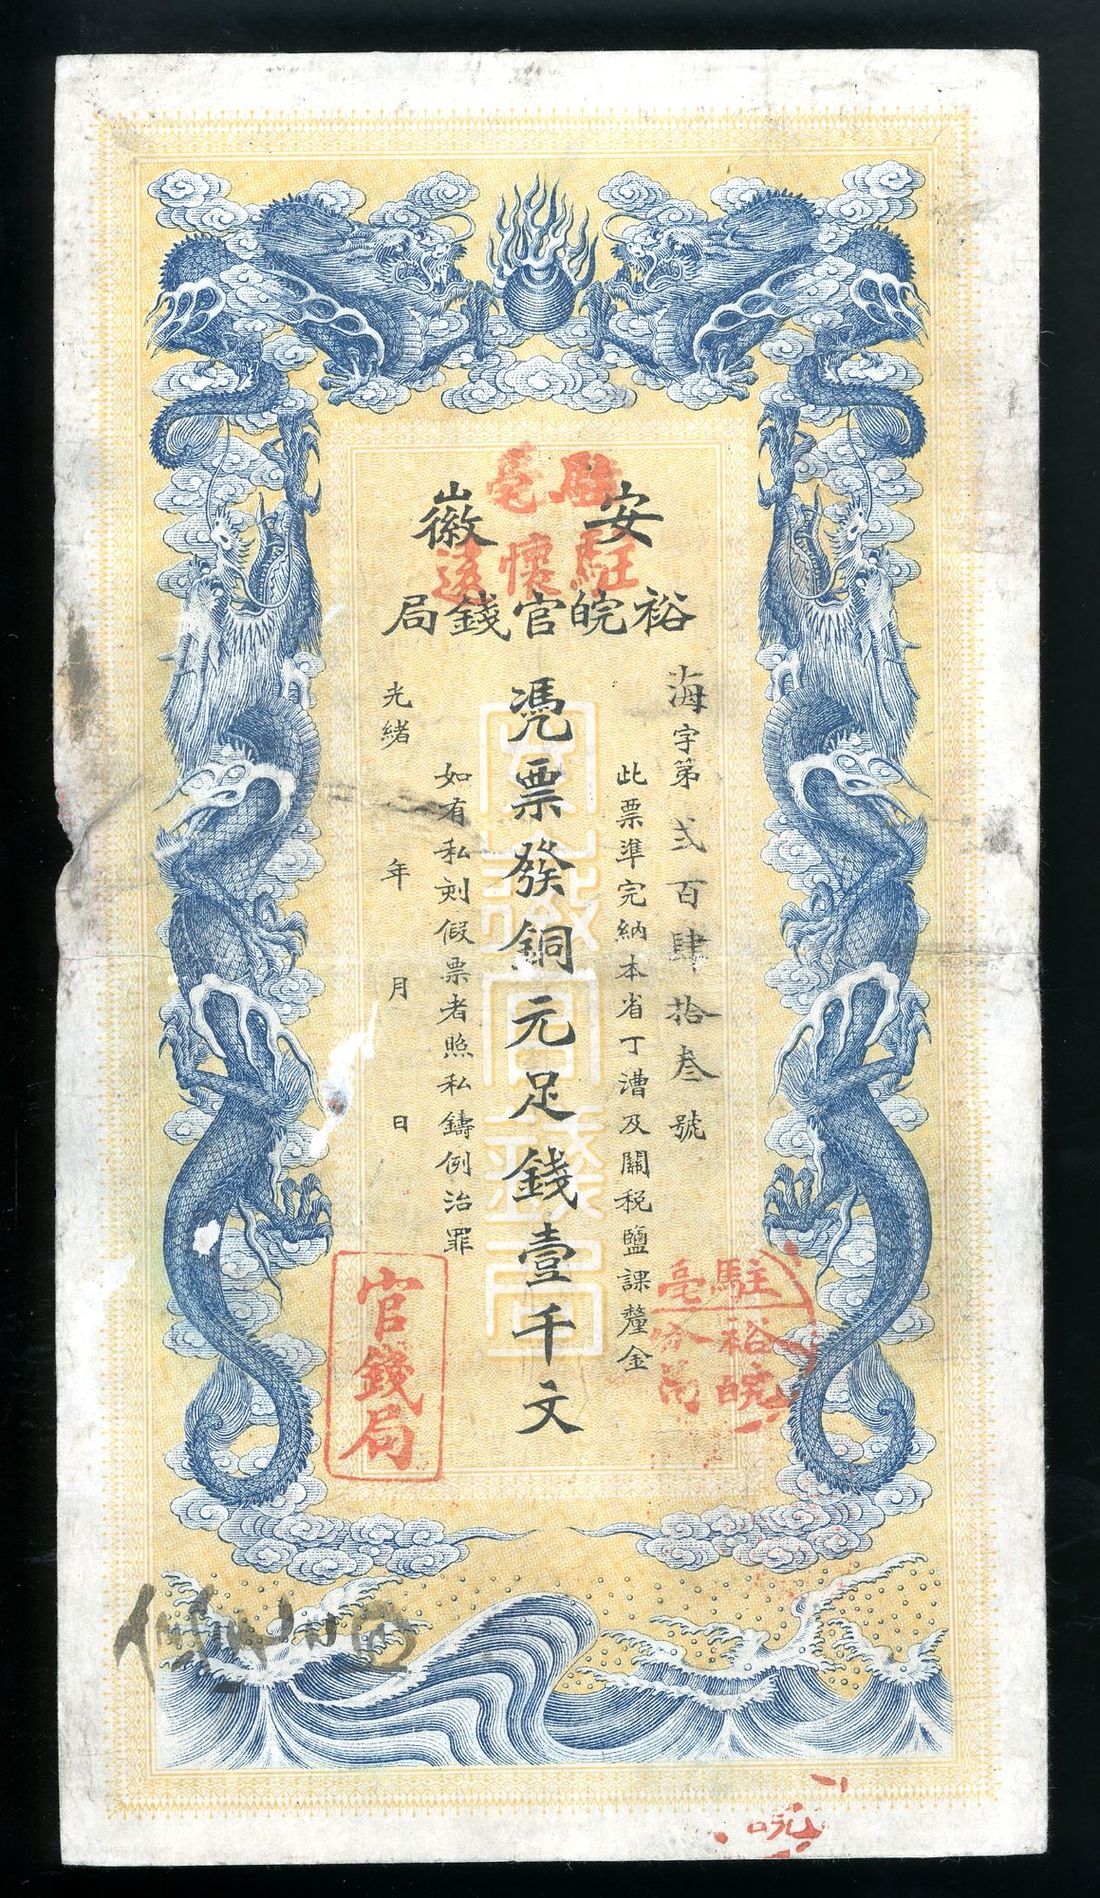 安徽
裕皖官錢局
駐亳
駐懷遠
海字第弍百肆拾叁號
此票準完納本省丁漕及關稅鹽課釐金
憑票發銅元足錢壹千文
如有私刻假票者照私鑄例治罪
光緒 年 月 日
安徽官錢局
官錢局
駐亳
裕皖